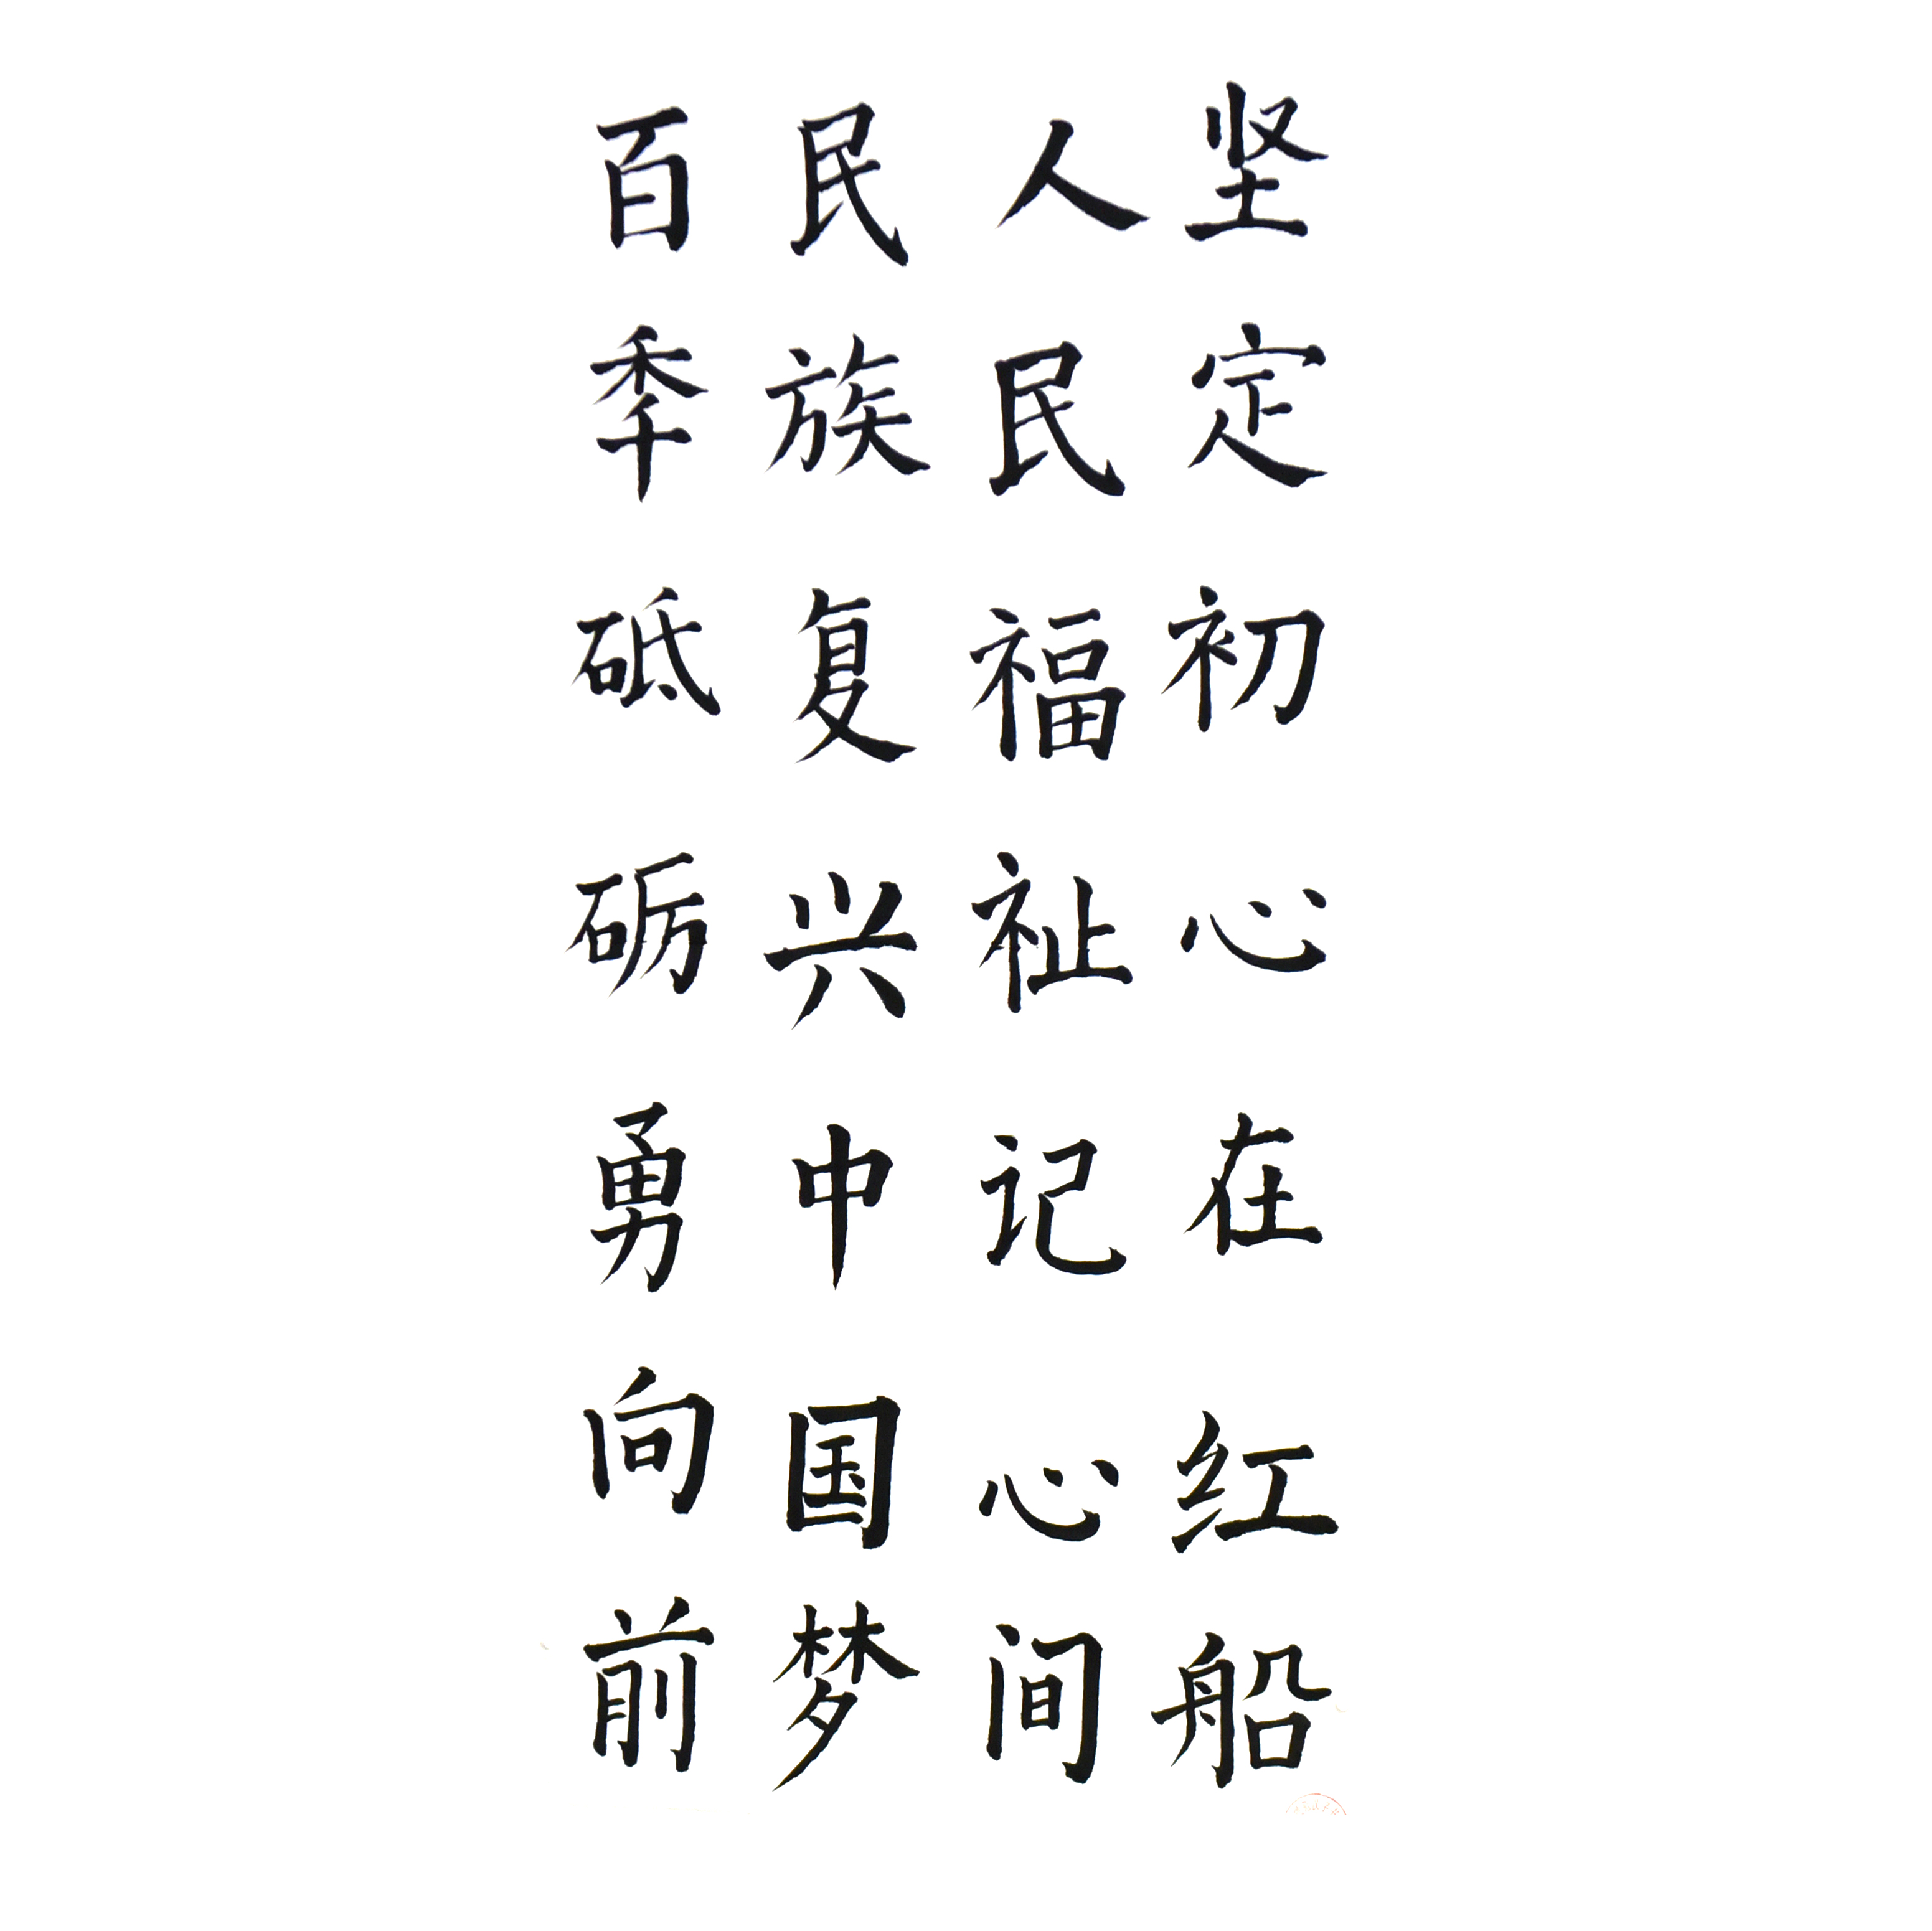 坚定初心在红船
人民福祉记心间
民族复兴中国梦
百秊砥砺勇向前